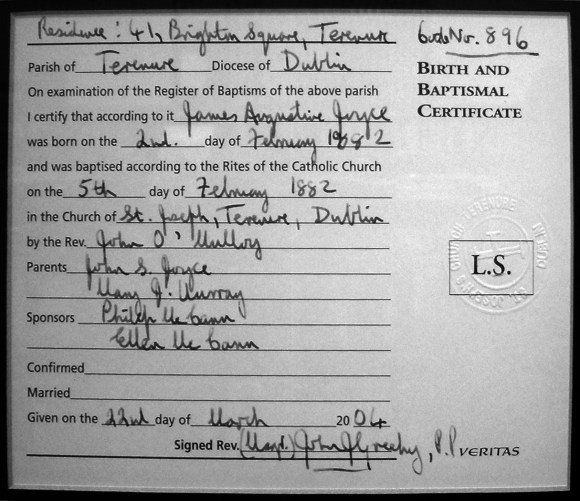 Residence: 41, Brighton Square, Terenure
Code No. 896
Parish of Terenure Diocese of Dublin
BIRTH AND
BAPTISMAL
CERTIFICATE
On examination of the Register of Baptisms of the above parish
I certify that according to it James Augustine Joyce
was born on the 2nd. day of February 1882
and was baptised according to the Rites of the Catholic Church
on the 5th day of February 1882
in the Church of St. Joseph, Terenure, Dublin
by the Rev. John O'Mulloy
Parents John S. Joyce
Mary J. Murray
Sponsors Philip McCann
Ellen McCann
L.S.
Confirmed
Married
Given on the 22nd day of March 2004
Signed Rev. (Magr.) John J Greehy, P.P
VERITAS